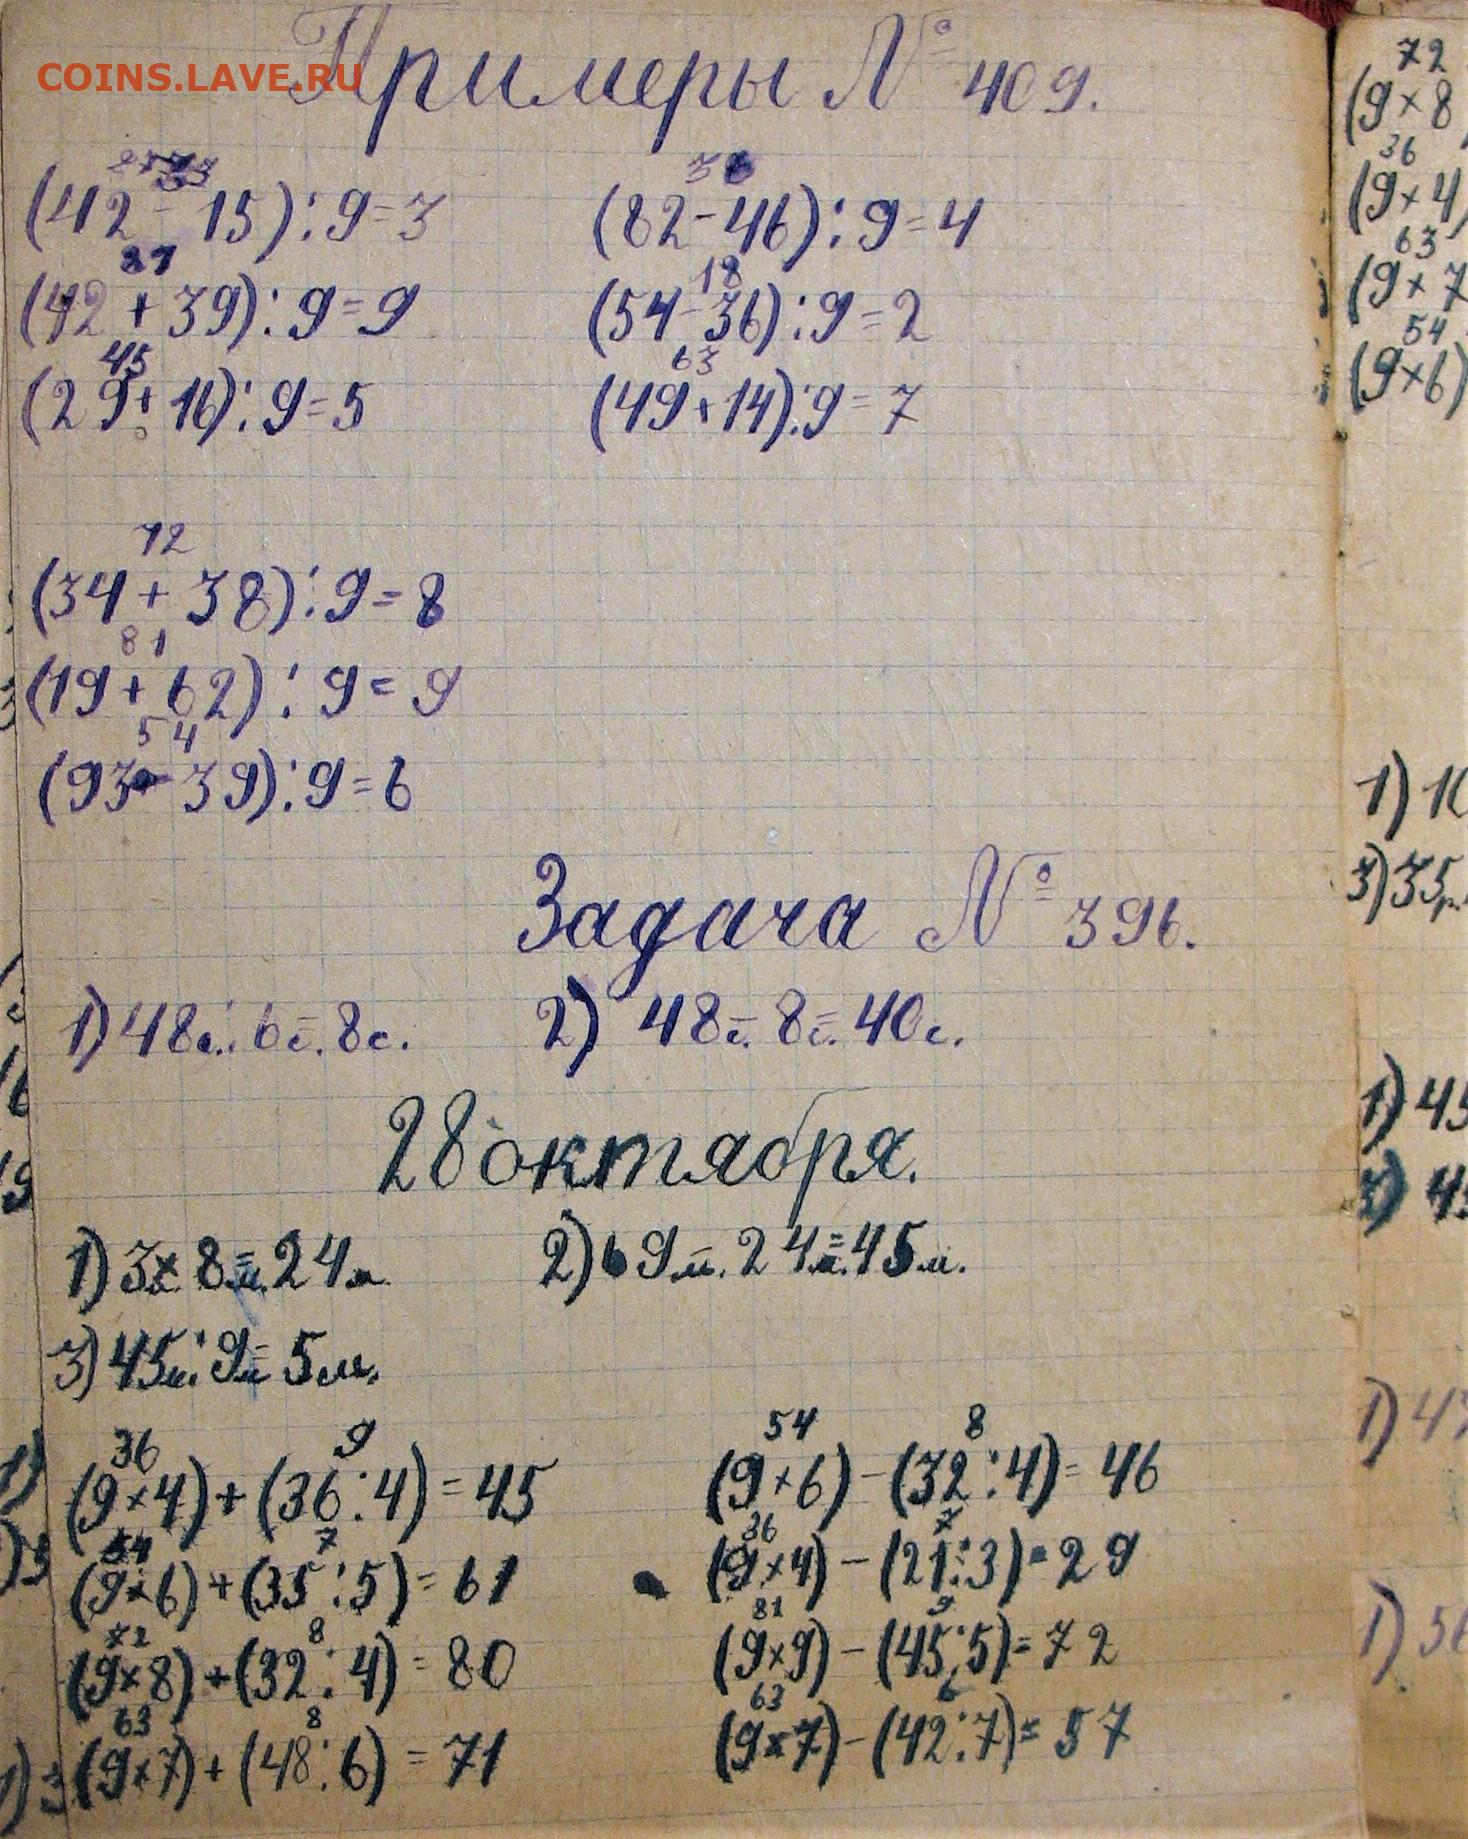 COINS.LAVE.RU
Примеры № 409.
27 36
(42 - 15) : 9 = 3 (82 - 46) : 9 = 4
81 18
(42 + 39) : 9 = 9 (54 - 36) : 9 = 2
45 63
(29 + 16) : 9 = 5 (49 + 14) : 9 = 7
72
(34 + 38) : 9 = 8
81
(19 + 62) : 9 = 9
54
(93 - 39) : 9 = 6
Задача № 396.
1) 48с. : 6с. = 8с. 2) 48с. - 8с. = 40с.
28 октября.
1) 3м. × 8м. = 24м. 2) 69м. - 24м. = 45м.
3) 45м. : 9м. = 5м.
36 9 54 8
(9 × 4) + (36 : 4) = 45 (9 × 6) - (32 : 4) = 46
54 7 36 7
(9 × 6) + (35 : 5) = 61 (9 × 4) - (21 : 3) = 29
72 8 81 9
(9 × 8) + (32 : 4) = 80 (9 × 9) - (45 : 5) = 72
63 8 63 6
(9 × 7) + (48 : 6) = 71 (9 × 7) - (42 : 7) = 57
72
(9 × 8
36
(9 × 4)
63
(9 × 7
54
(9 × 6)
1)
3) 35р.
1) 45
3)
1)
1)